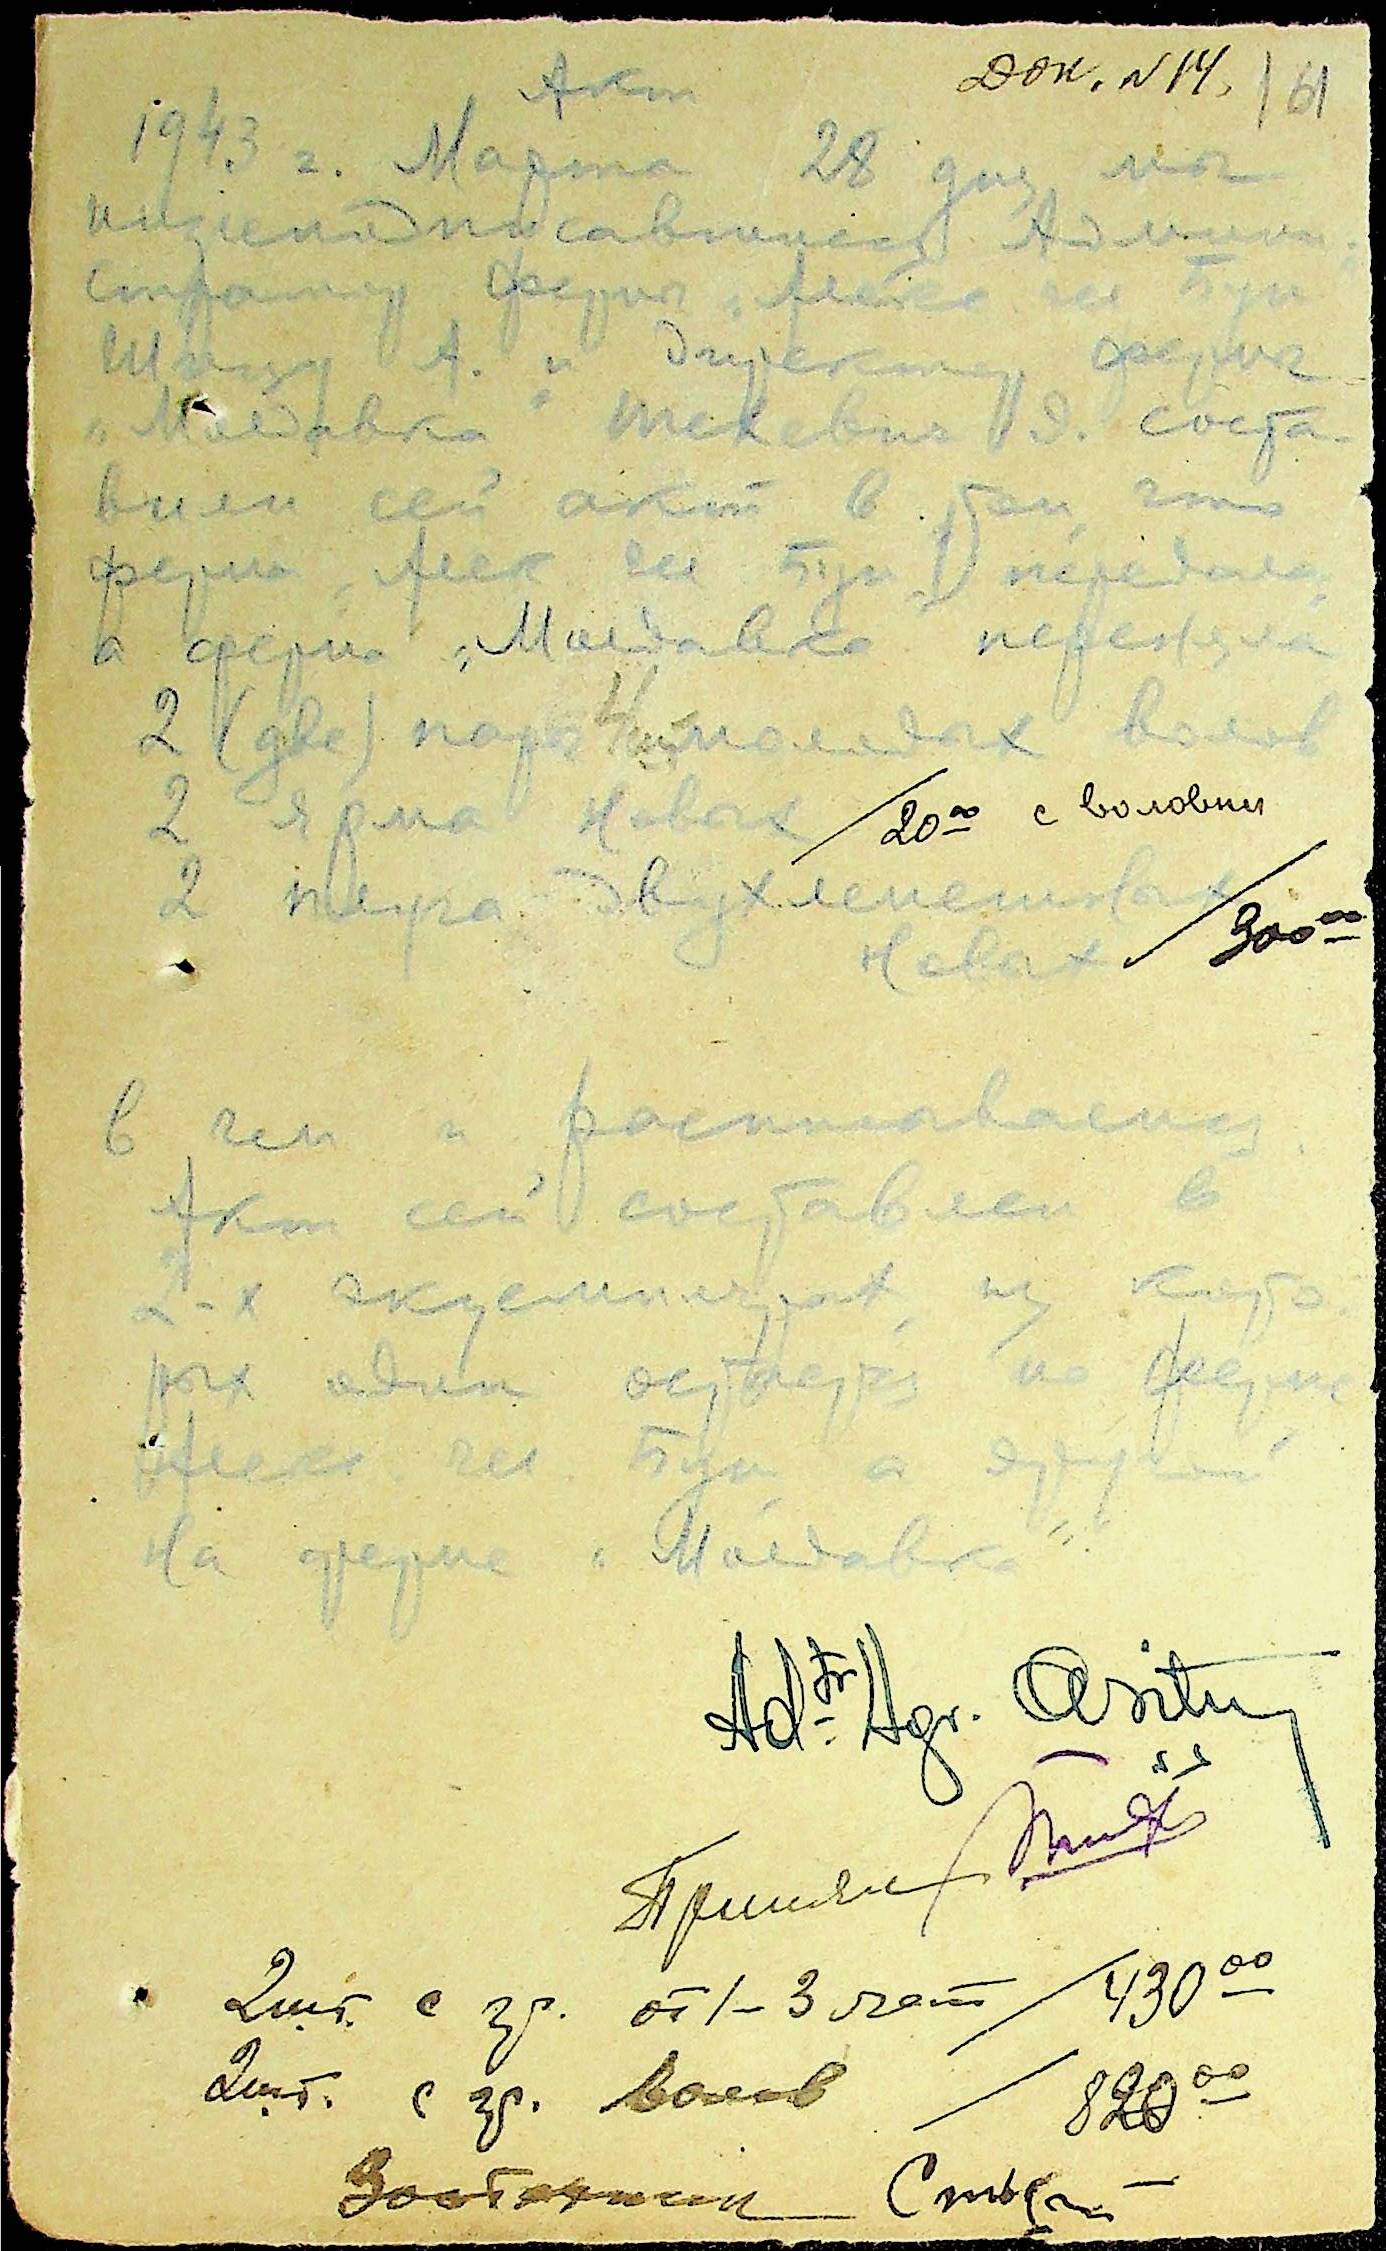 Док. N 14. 161
Акт
1943 г. Марта 28 дня, мы
нижеподписавшиеся Админи-
стратор фермы „Алекс чел Бун
А. и Директор фермы
„Молдавка" Д. соста-
вили сей акт в том, что
ферма „Алек чел Бун" передала,
а ферма „Молдавка" переняла
2 (две) пары 4 шт молодых волов
2 ярма новых / 20 00 с воловни
2 плуга двухлемешных
новых / 300 00
в чем и расписываемся.
Акт сей составлен в
2-х экземплярах, из кото-
рых один остается на ферме
Алекс чел Бун, а другой
на ферме „Молдавка"
Ad-tr Agr.
Принял
2 шт. с гр. от 1-3 лет / 430 00
2 шт. с гр. волов / 820 00
Зоотехник